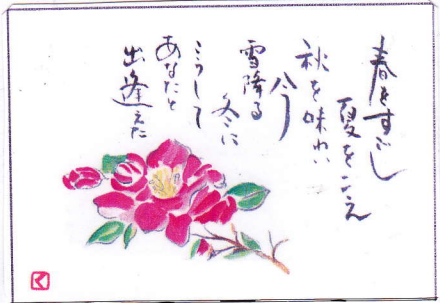 春をすごし
夏をこえ
秋を味わい
今
雪降る
冬に
こうして
あなたと
出逢えた
く